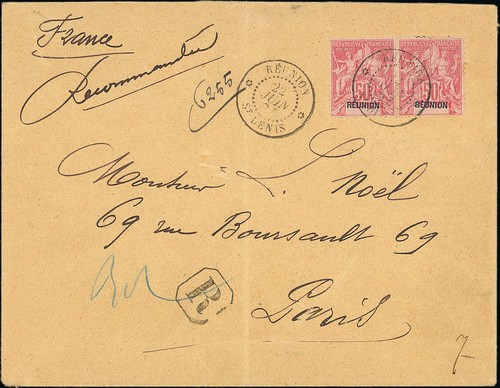 France
Recommandée
6255
RÉUNION
22
JUIN
ST DENIS
RÉPUBLIQUE FRANÇAISE
50
RÉUNION
RÉPUBLIQUE FRANÇAISE
50
RÉUNION
RÉUNION
Monsieur L. Noël
69 rue Boursault 69
Paris
R
7